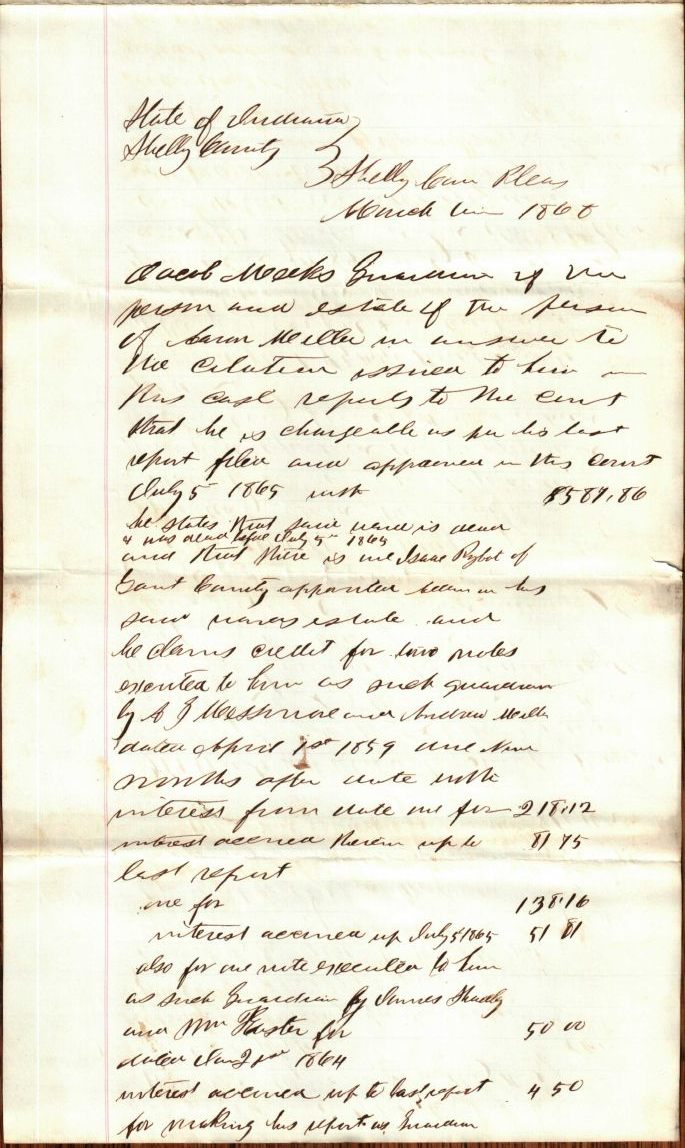 State of Indiana
Shelby County
Shelby Com Pleas
March 1868
Jacob Meeks Guardian of the
person and estate of the person
of Aaron Miller in answer to
the citation issued to him in
this case reports to the court
that he is chargeable as per his last
report filed and approved in this court
July 5 1865 with $589.86
he states that said ward is dead
& was dead before July 5th 1865
and that there is one Isaac of
Grant County appointed in his
said wards estate and
he claims credit for two notes
executed to him as such guardian
by A J and Andrew Miller
dated April 1st 1859 due Nine
months after date with
interest from date one for 218.12
interest accrued therein up to 81 75
last report
one for 138.16
interest accrued up July 5 1865 51 81
also for one note executed to him
as such Guardian by James
and Wm for 50 00
dated Jan 2 1864
interest accrued up to last report 4 50
for making his report as Guardian